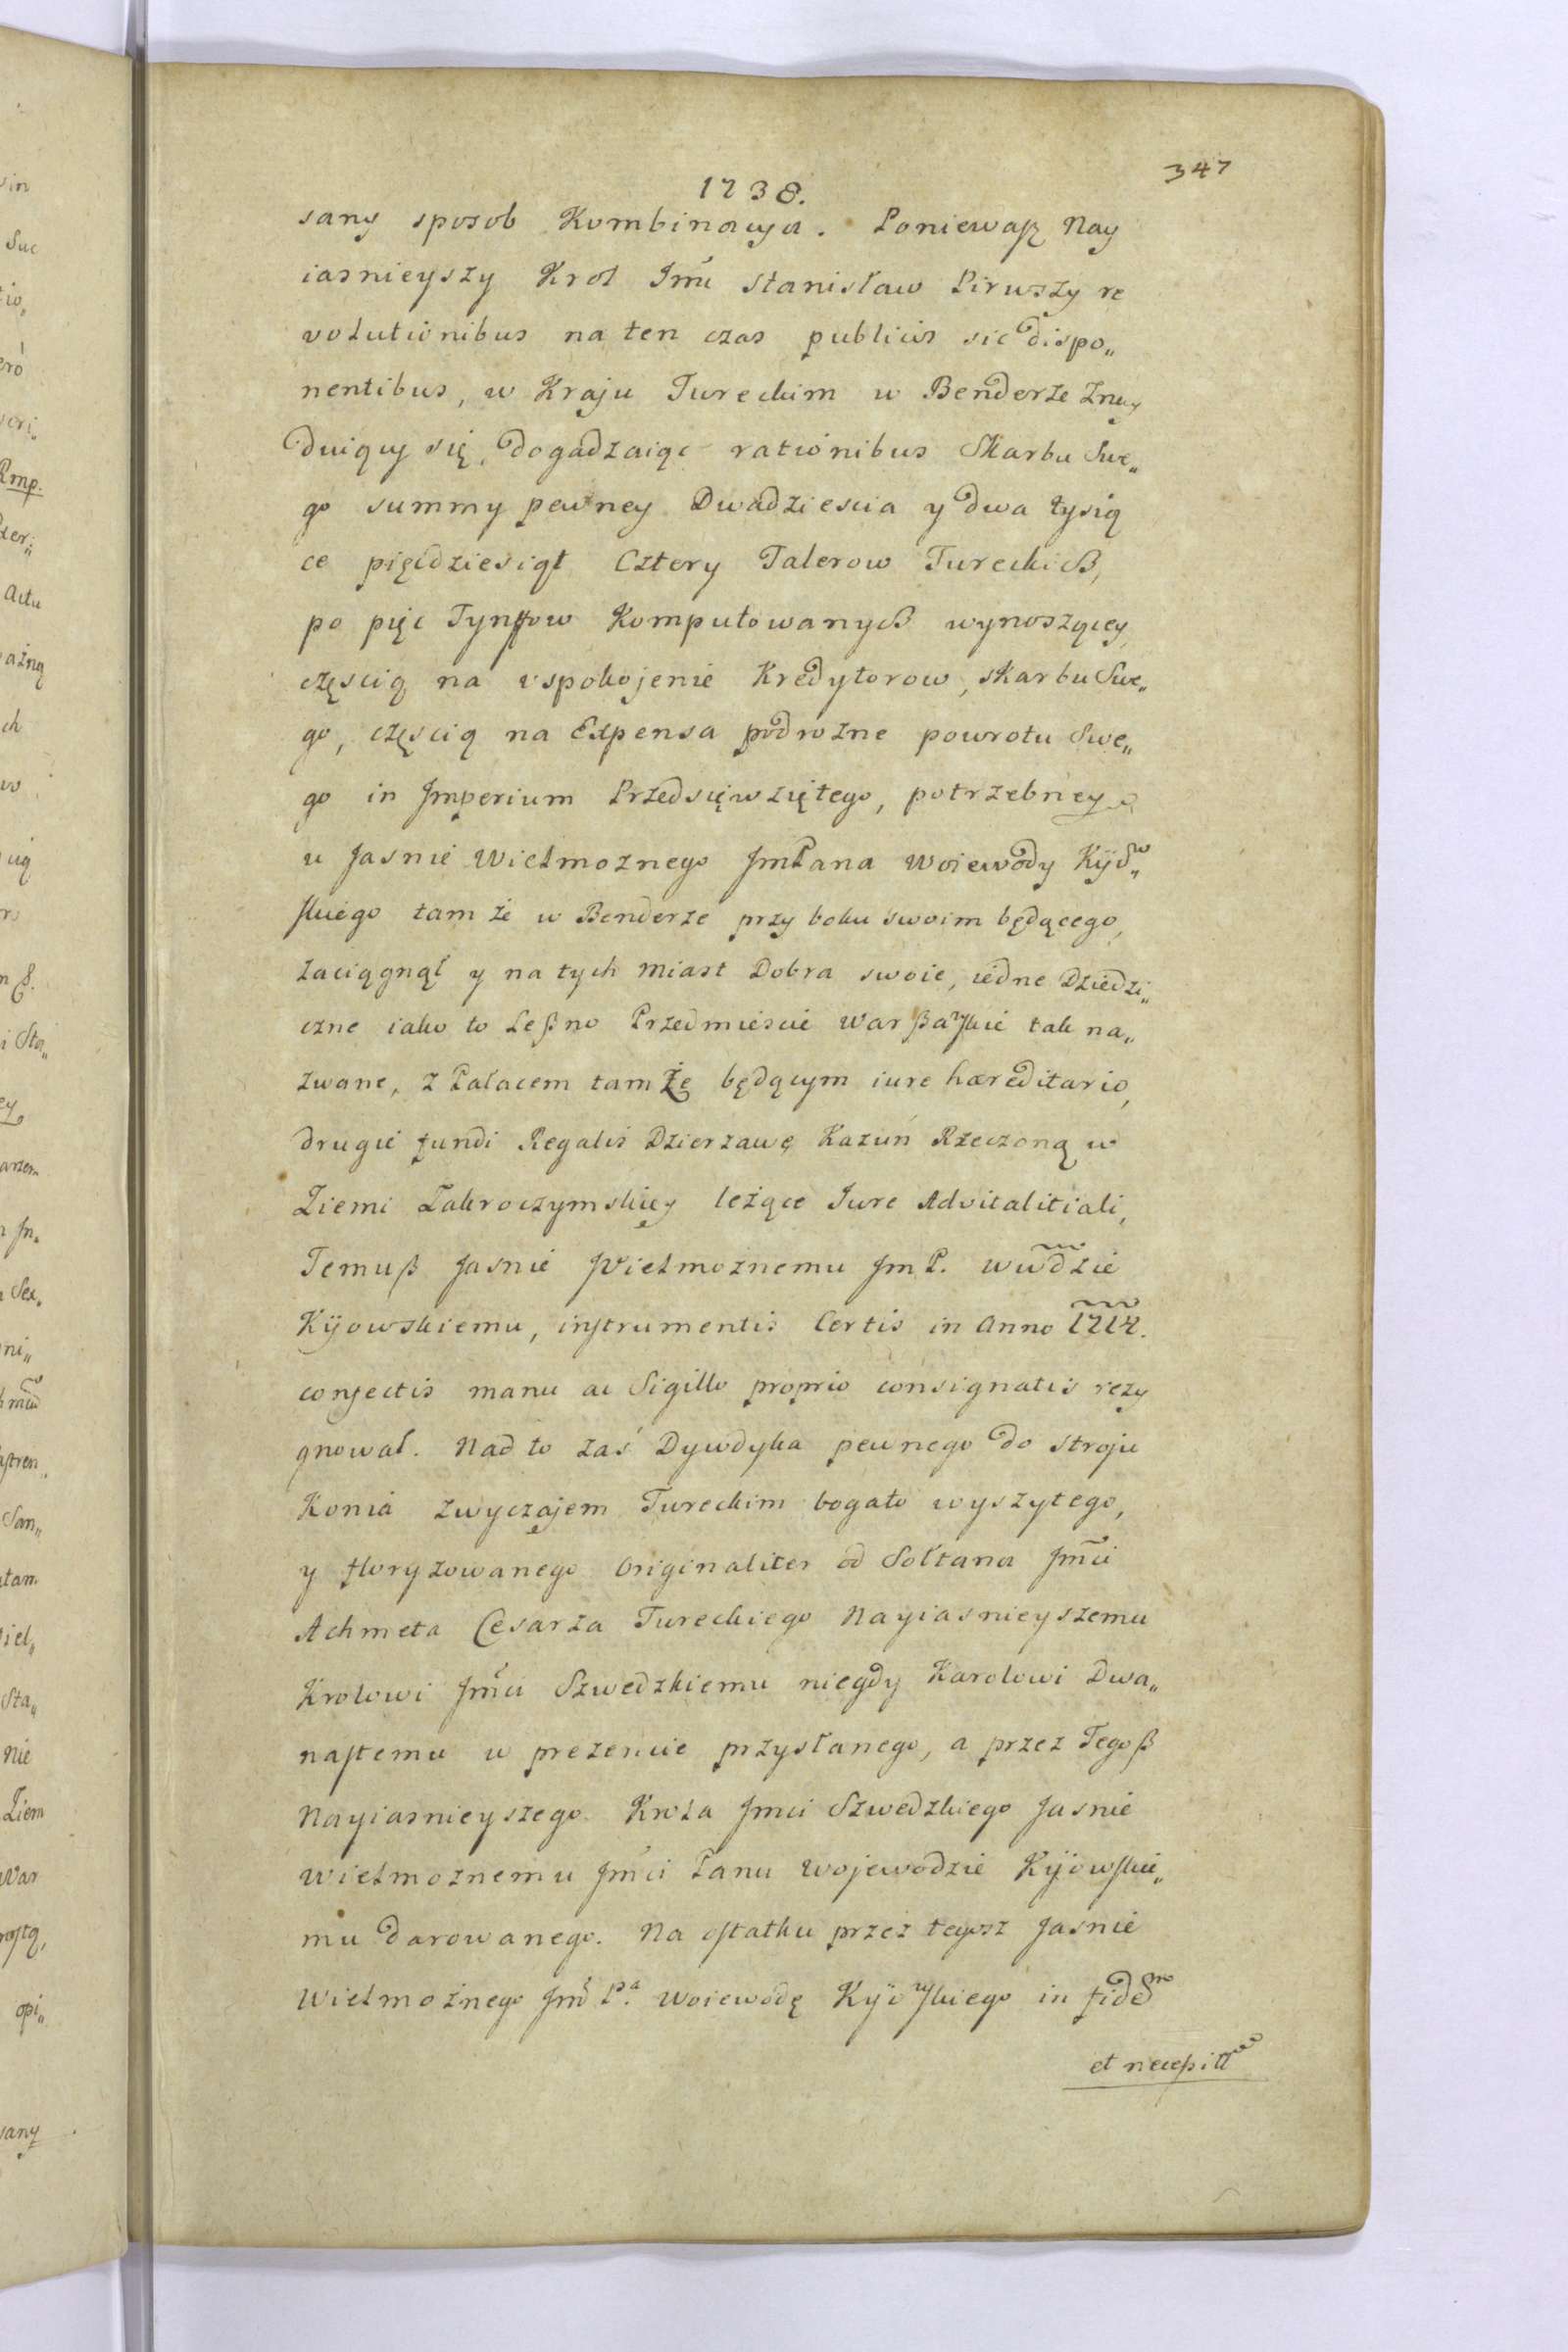 347
1738.
sany sposob Kombinacya. Poniewasz Nay
iasnieyszy Krol Jmci Stanisław Pirwszy re
volutionibus na ten czas publicis sic dispo„
nentibus, w Kraju Tureckim w Benderze znay
duiący się, dogadzaiąc rationibus Skarbu Swe„
go summy pewney Dwadziescia y dwa tysią
ce pięcdziesiąt Cztery Talerow Tureckich,
po pięc Tynffow Komputowanych wynoszącey,
częscią na uspokojenie Kredytorow, skarbu Swe„
go, częscią na Expensa podrozne powrotu Swe„
go in Jmperium Przedsięwziętego, potrzebney
u Jasnie Wielmoznego JmPana Woiewody Kijow„
skiego tam że w Benderze przy boku swoim będącego,
zaciągnął y na tych miast Dobra swoie, iedne Dziedzi„
czne iako to Leßno Przedmieście Warßawskie tak na„
zwane, z Pałacem tamże będącym iure hæreditario,
drugie fundi Regalis Dzierzawę Kazuń Rzeczoną w
Ziemi Zakroczymskiey leżące Jure Advitalitiali,
Temuß Jasnie Wielmoznemu JmP. Wwdzie
Kijowskiemu, instrumentis Certis in Anno 1714.
confectis manu ac Sigillo proprio consignatis rezy
gnował. Nad to zaś Dywdyka pewnego do stroju
Konia zwyczajem Tureckim bogato wyszytego,
y floryzowanego Originaliter od Sołtana Jmci
Achmeta Cesarza Tureckiego Nayiasnieyszemu
Krolowi Jmci Szwedzkiemu niegdy Karolowi Dwa„
nastemu w prezencie przysłanego, a przez Tegoß
Nayiasnieyszego Krola Jmci Szwedzkiego Jasnie
Wielmoznemu Jmci Panu Wojewodzie Kijowskie„
mu darowanego. Na ostatku przez tegosz Jasnie
Wielmożnego Jmci Pa. Woiewodę Kijowskiego in fidem
et necessit